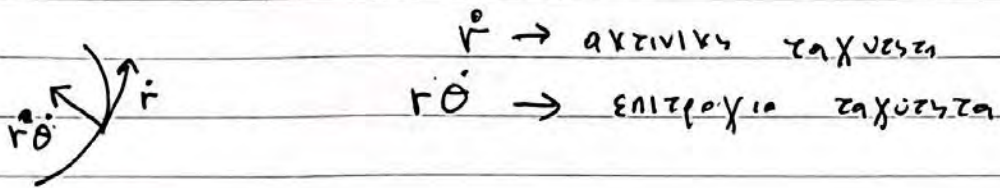 ṙ → ακτινικη ταχυτητα
ṙ
rθ̇ → επιτροχια ταχύτητα
ṙθ̇